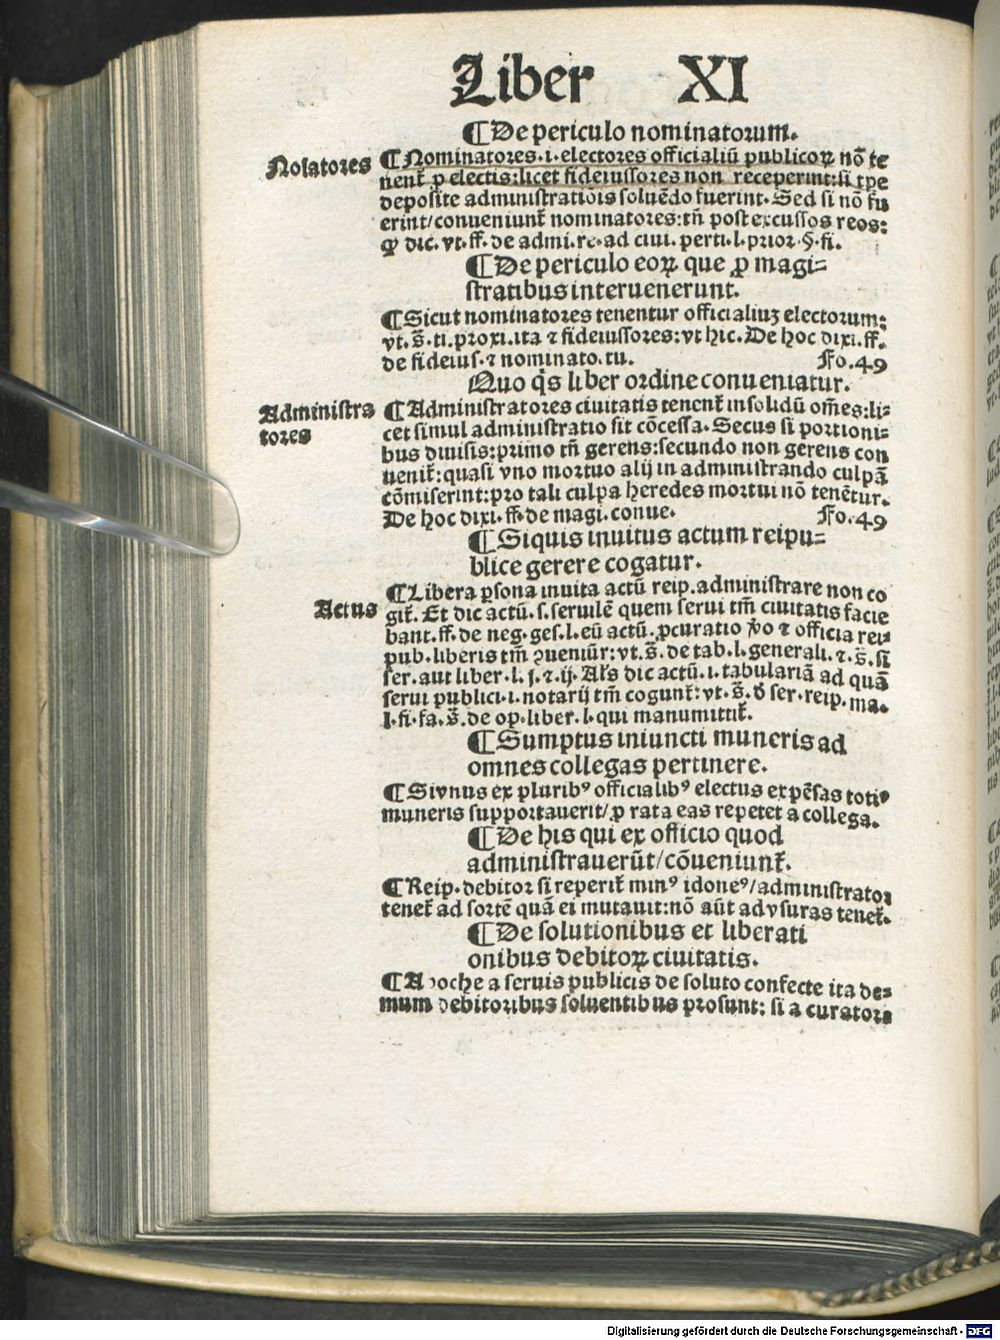 Liber XI
¶ De periculo nominatorum.
Nolatores
¶ Nominatores .i. electores officialiū publicoꝝ nō te
nent̄ ꝓ electis: licet fideiussores non receperint: si tꝑe
deposite administratiōis soluēdo fuerint. Sed si nō fu
erint/conueniunt̄ nominatores: tn̄ post excussos reos:
ꝙ dic. vt. ff. de admi. re. ad ciui. perti. l. prior. §. fi.
¶ De periculo eoꝝ que ꝓ magi⸗
stratibus interuenerunt.
¶ Sicut nominatores tenentur officialiuꝫ electorum:
vt. s̄. ti. proxi. ita ⁊ fideiussores: vt hic. De hoc dixi. ff.
de fideius. ⁊ nominato. tu. Fo. 49
Quo q̄s liber ordine conueniatur.
Administra
tores
¶ Administratores ciuitatis tenent̄ insolidū om̄es: li⸗
cet simul administratio sit cōcessa. Secus si portioni⸗
bus diuisis: primo tn̄ gerens: secundo non gerens con
uenit̄: quasi vno mortuo alij in administrando culpā
cōmiserint: pro tali culpa heredes mortui nō tenētur.
De hoc dixi. ff. de magi. conue. Fo. 49
¶ Siquis inuitus actum reipu⸗
blice gerere cogatur.
Actus
¶ Libera ꝑsona inuita actū reip. administrare non co
git̄. Et dic actū. s. seruilē quem serui tm̄ ciuitatis facie
bant. ff. de neg. ges. l. eū actū. ꝓcuratio v̊o ⁊ officia rei⸗
pub. liberis tm̄ ꝯueniūr: vt. s̄. de tab. l. generali. ⁊. s̄. si
ser. aut liber. l. j. ⁊. ij. Al̓s dic actū. i. tabulariā ad quā
serui publici. i. notarij tm̄ cogunt̄: vt. s̄. ď ser. reip. ma.
l. fi. fa. s̄. de op. liber. l. qui manumittit̄.
¶ Sumptus iniuncti muneris ad
omnes collegas pertinere.
¶ Si vnus ex pluribꝰ officialibꝰ electus expēsas totiꝰ
muneris supportauerit/ꝓ rata eas repetet a collega.
¶ De his qui ex officio quod
administrauerūt/cōueniunt̄.
¶ Reip. debitor si reperit̄ minꝰ idoneꝰ/administrator
tenet̄ ad sortē quā ei mutauit: nō aūt ad vsuras tenet̄.
¶ De solutionibus et liberati
onibus debitoꝝ ciuitatis.
¶ Apoche a seruis publicis de soluto confecte ita de⸗
mum debitoribus soluentibus prosunt: si a curatore
Digitalisierung gefördert durch die Deutsche Forschungsgemeinschaft - DFG